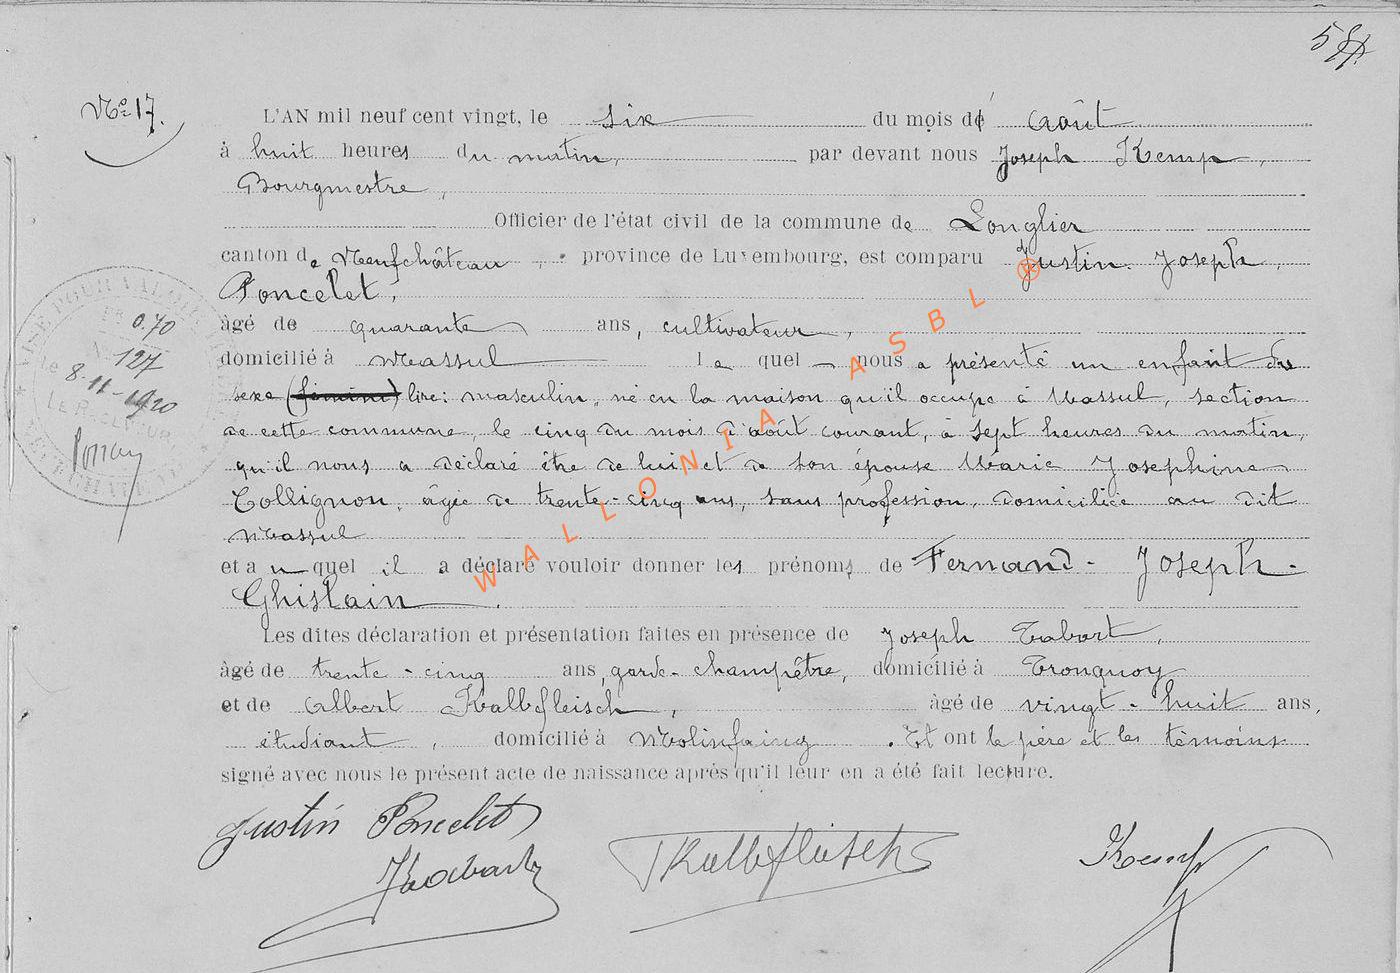 Nº 17.
L'AN mil neuf cent vingt, le six du mois de Août
à huit heures du matin, par devant nous Joseph Kemp,
Bourgmestre,
Officier de l'état civil de la commune de Longlier
canton de Neufchâteau, province de Luxembourg, est comparu Justin Joseph
Poncelet,
âgé de quarante ans, cultivateur,
domicilié à Massul lequel nous a présenté un enfant du
sexe (féminin) lire: masculin, né en la maison qu'il occupe à Massul, section
de cette commune, le cinq du mois d'août courant, à sept heures du matin,
qu'il nous a déclaré être de lui et de son épouse Marie Josephine
Collignon, âgée de trente-cinq ans, sans profession, domiciliée au dit
Massul
et auquel il a déclaré vouloir donner les prénoms de Fernand - Joseph -
Ghislain.
Les dites déclaration et présentation faites en présence de Joseph Tabart,
âgé de trente-cinq ans, garde-champêtre, domicilié à Tronquoy
et de Albert Kalbfleisch, âgé de vingt-huit ans,
étudiant, domicilié à Molinfaing. Et ont le père et les témoins
signé avec nous le présent acte de naissance après qu'il leur en a été fait lecture.
Justin Poncelet
Kalbfleisch
Kemp
VISÉ POUR VALOIR TIMBRE
FR 0.70
Nº 127
Le 8-11-1920
LE RECEVEUR,
NEUFCHATEAU
WALLONIA ASBL ®